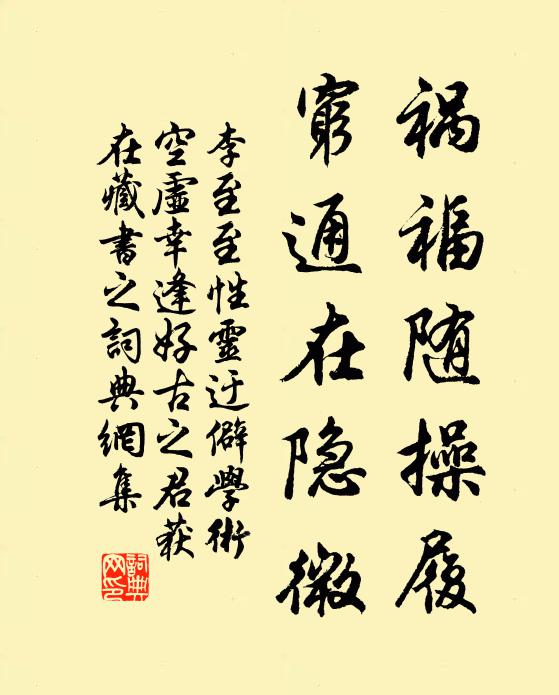 祸福随操履
穷通在隐微
李至至性靈迂僻學術
空虛幸逢好古之君获
在藏書之詞典網集
詞典网印